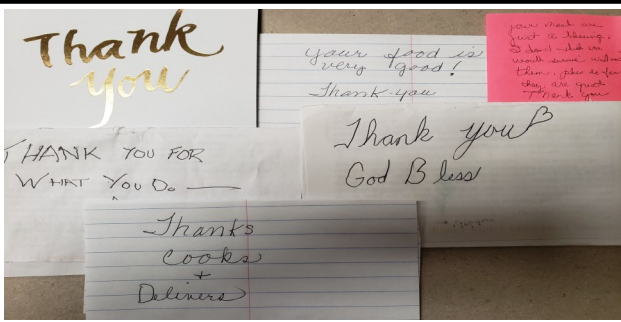 Thank
you
your food is
very good!
Thank-you
your meals are
just a blessing.
I don't
would
them.
they are great
Thank you
Thank you
God Bless
THANK YOU FOR
WHAT YOU DO
Thanks
Cooks
+
Delivers